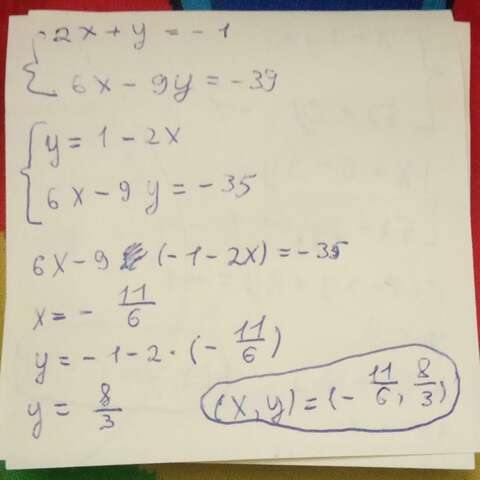 2x + y = - 1
6x - 9y = - 39
y = 1 - 2x
6x - 9 y = - 35
6x - 9 (-1 - 2x) = - 35
x = - 11/6
y = - 1 - 2 · (- 11/6)
y = 8/3
(x, y) = (- 11/6, 8/3)